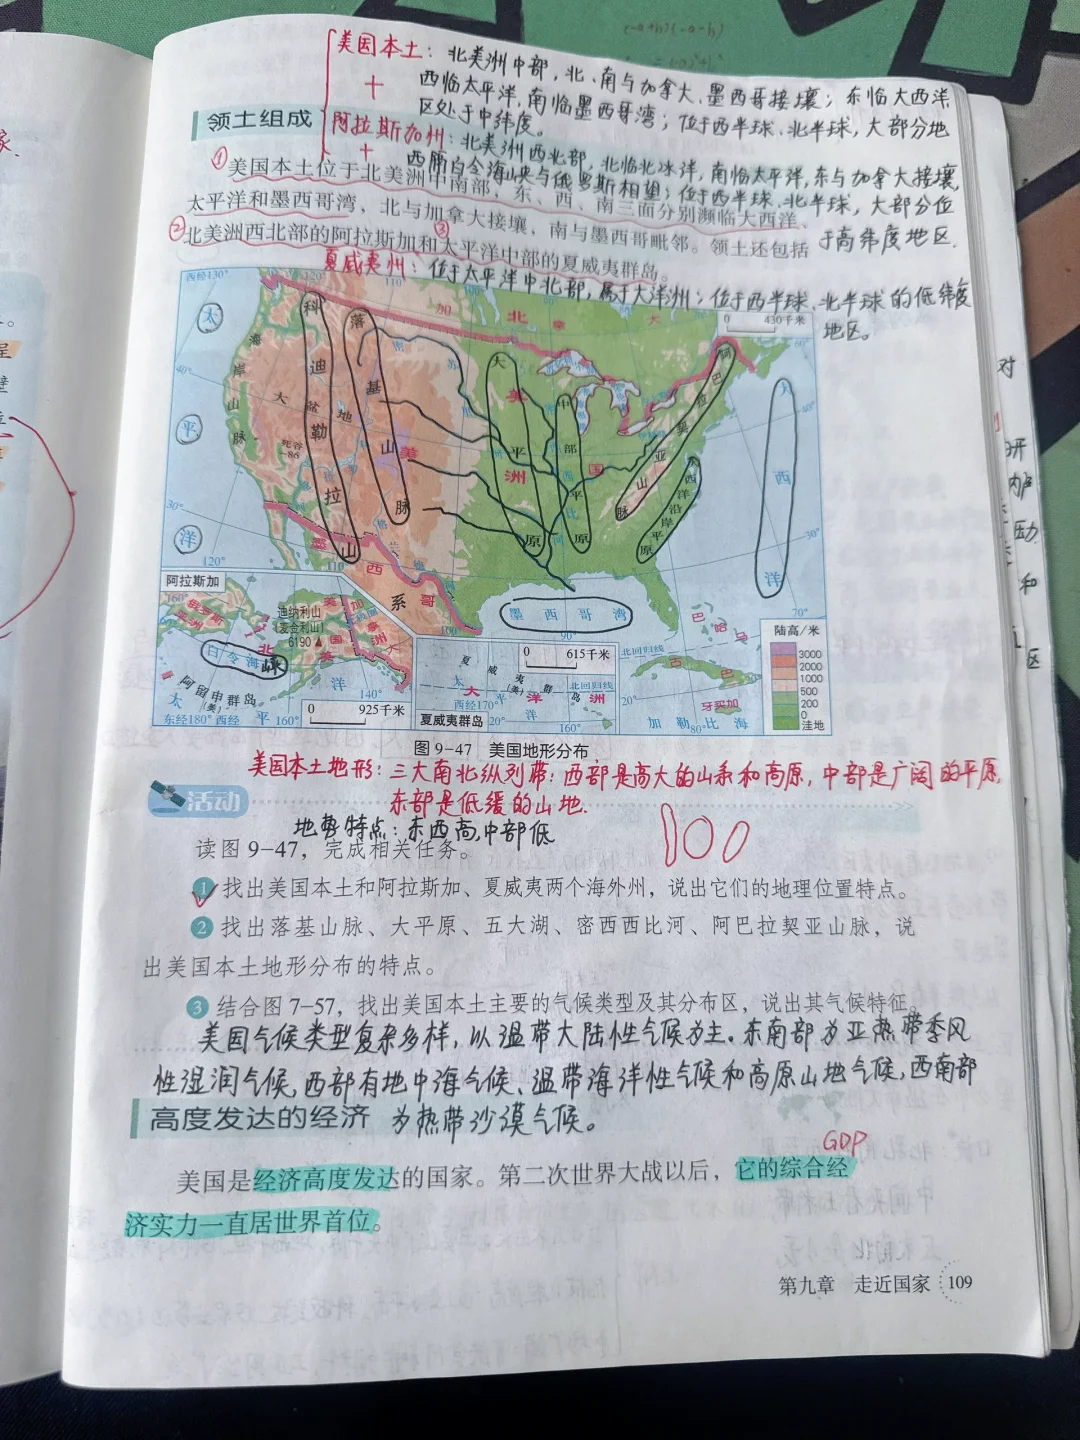 美国本土：北美洲中部，北、南与加拿大、墨西哥接壤；东临大西洋
+ 西临太平洋，南临墨西哥湾；位于西半球、北半球，大部分地
区处于中纬度。
领土组成
阿拉斯加州：北美洲西北部，北临北冰洋，南临太平洋，东与加拿大接壤，
+ 西隔白令海峡与俄罗斯相望；位于西半球、北半球，大部分位
于高纬度地区.
①美国本土位于北美洲中南部，东、西、南三面分别濒临大西洋、
太平洋和墨西哥湾，北与加拿大接壤，南与墨西哥毗邻。领土还包括
②北美洲西北部的阿拉斯加和③太平洋中部的夏威夷群岛。
夏威夷州：位于太平洋中北部，属于大洋洲；位于西半球、北半球的低纬度
地区。
西经130°
120°
110°
60°
40°
30°
70°
0 430千米
加 拿 大
北 美 洲
美 国
墨 西 哥
太 平 洋
大 西 洋
海岸山脉
科迪勒拉山系
落基山脉
大盆地
死谷
-86
大平原
中部平原
阿巴拉契亚山脉
大西洋沿岸平原
墨 西 哥 湾
90°
阿拉斯加
160°
俄罗斯
迪纳利山
(麦金利山)
6190▲
白令海峡
阿留申群岛
(美)
太 平 洋
东经180° 西经 160°
140°
0 925千米
夏威夷群岛
(美)
0 615千米
大 洋 洲
太 平 洋
北回归线
西经170°
20°
160°
巴哈马
北回归线
古 巴
牙买加
加 勒 比 海
20°
80°
陆高/米
3000
2000
1000
500
200
0
洼地
图 9-47 美国地形分布
美国本土地形：三大南北纵列带：西部是高大的山系和高原，中部是广阔的平原，
东部是低缓的山地.
活动
地势特点：东西高，中部低
读图 9-47，完成相关任务。
1 找出美国本土和阿拉斯加、夏威夷两个海外州，说出它们的地理位置特点。
2 找出落基山脉、大平原、五大湖、密西西比河、阿巴拉契亚山脉，说
出美国本土地形分布的特点。
3 结合图 7-57，找出美国本土主要的气候类型及其分布区，说出其气候特征。
美国气候类型复杂多样，以温带大陆性气候为主。东南部为亚热带季风
性湿润气候，西部有地中海气候、温带海洋性气候和高原山地气候，西南部
为热带沙漠气候。
高度发达的经济
GDP
美国是经济高度发达的国家。第二次世界大战以后，它的综合经
济实力一直居世界首位。
第九章 走近国家 109